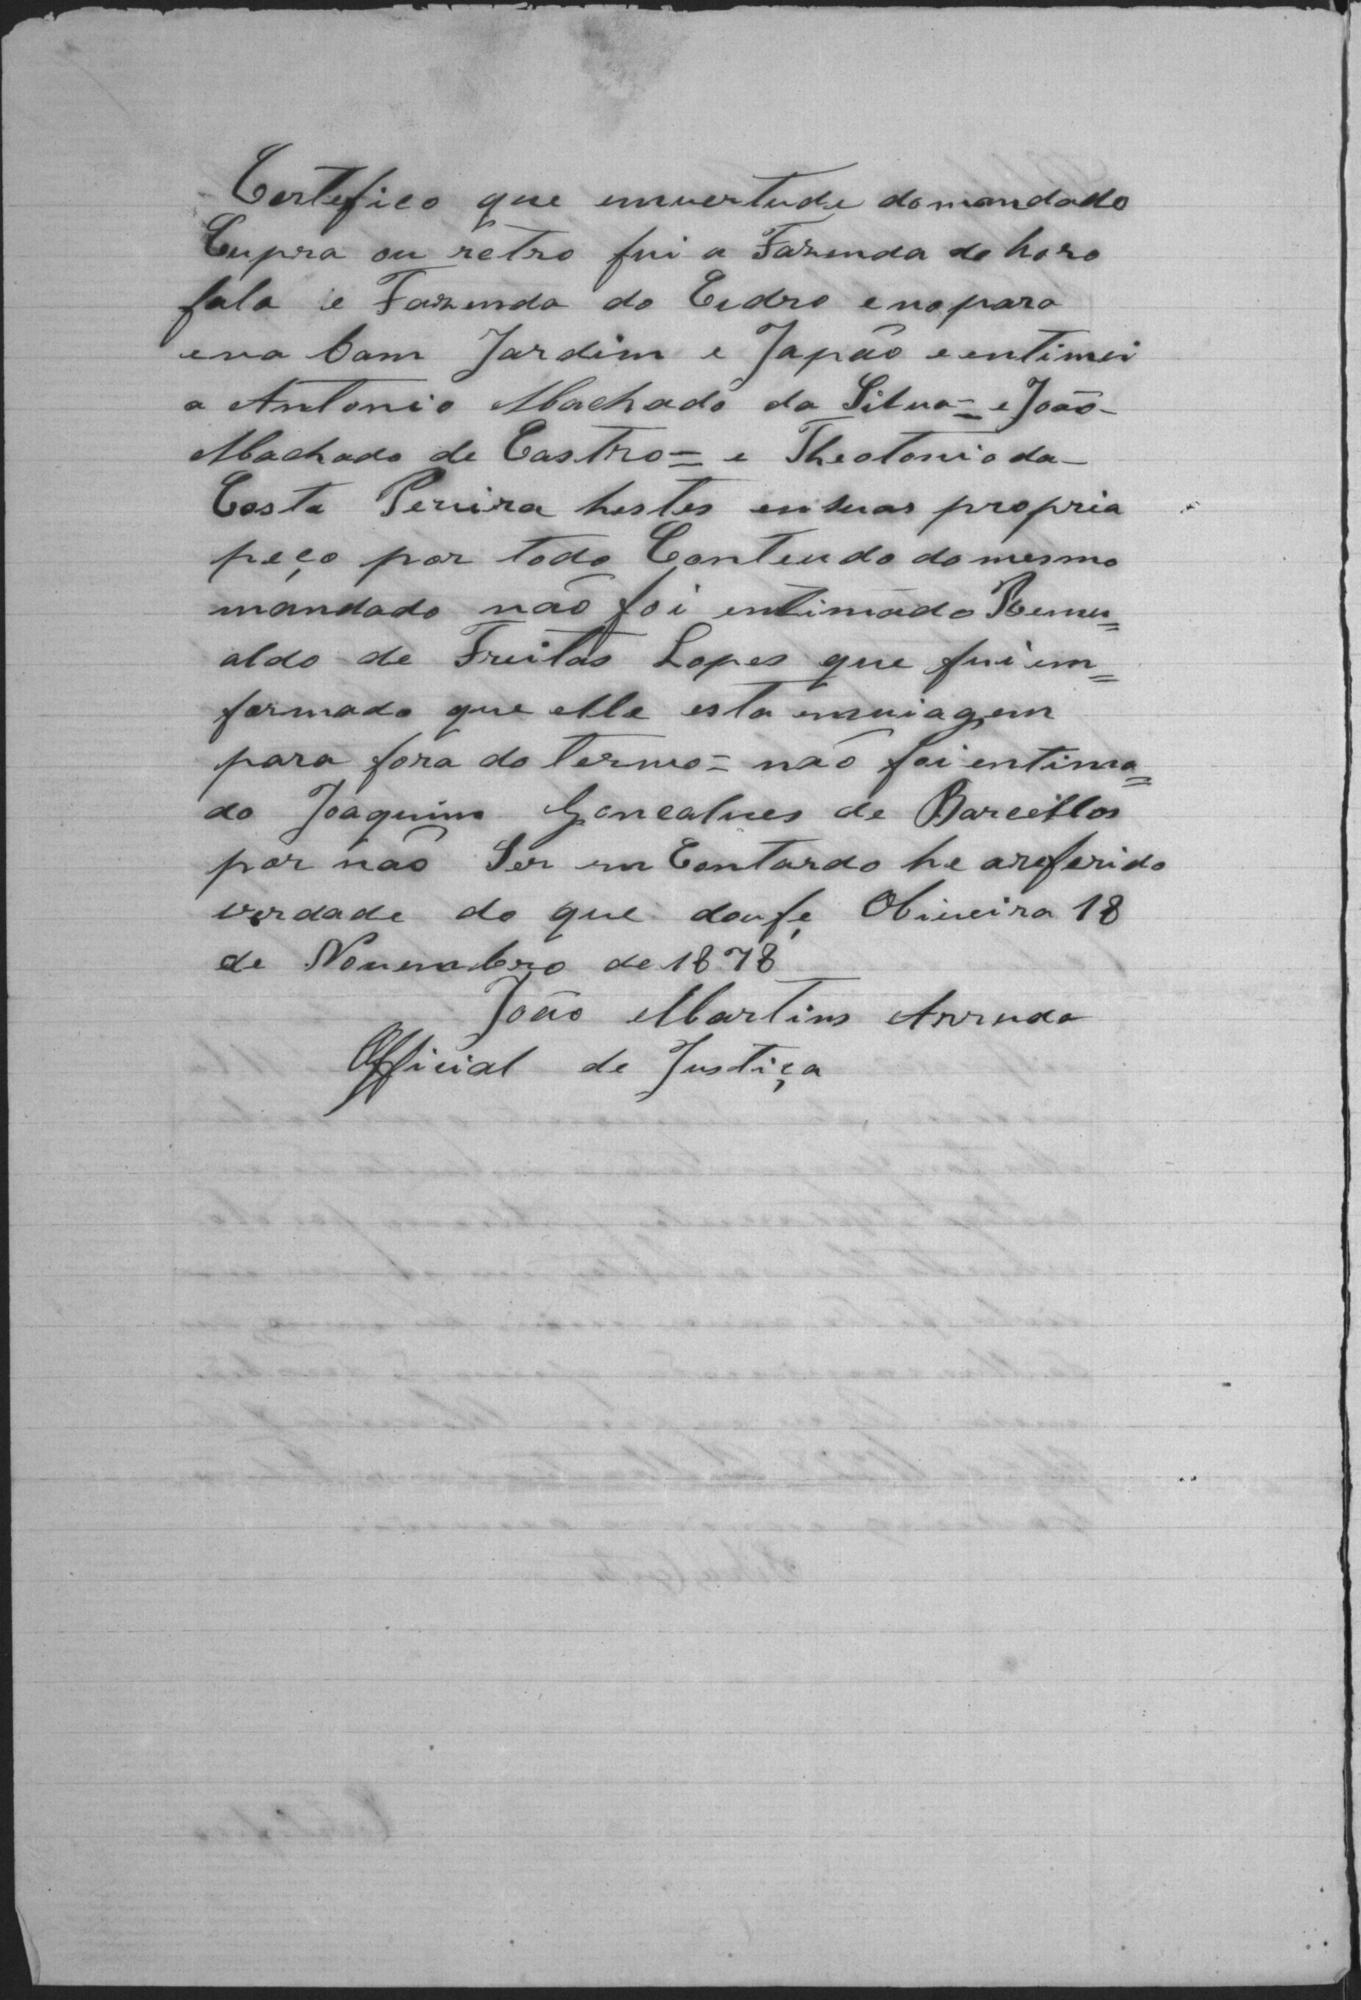 Certefico que emvertude domandado
Cupra ou retro fui a Fazenda do horo
fala e Fazenda do Cedro e noparo
eva bam Jardim e Japão e entimei
a Antonio Machado da Silva= e João-
Machado de Castro= e Theotonio da-
Costa Pereira hestes emsuas propria
peço por todo Conteudo do mesmo
mandado não foi entimado Remu=
aldo de Freitas Lopes que fui em=
formado que elle esta emviagem
para fora do termo= não foi entima=
do Joaquim Goncalves de Barcellos
por não Ser en Contardo he areferido
verdade do que doufé Oliveira 18
de Novembro de 1878
João Martins Arruda
Official de Justiça